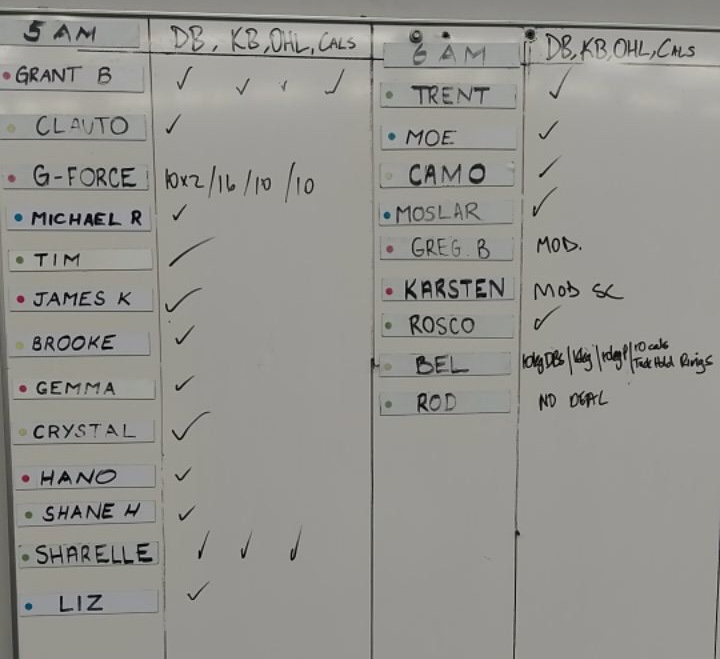 5 AM DB, KB, OHL, CALS
GRANT B ✓ ✓ ✓ ✓
CLAUTO ✓
G-FORCE 10x2/16/10/10
MICHAEL R ✓
TIM ✓
JAMES K ✓
BROOKE ✓
GEMMA ✓
CRYSTAL ✓
HANO ✓
SHANE H ✓
SHARELLE ✓ ✓ ✓
LIZ ✓
6 AM DB, KB, OHL, CALS
TRENT ✓
MOE ✓
CAMO ✓
MOSLAR ✓
GREG. B MOD.
KARSTEN MOD SC
ROSCO ✓
BEL 10kg DBs / / / 10 cals
Tuck Hold Rings
ROD NO DEAL